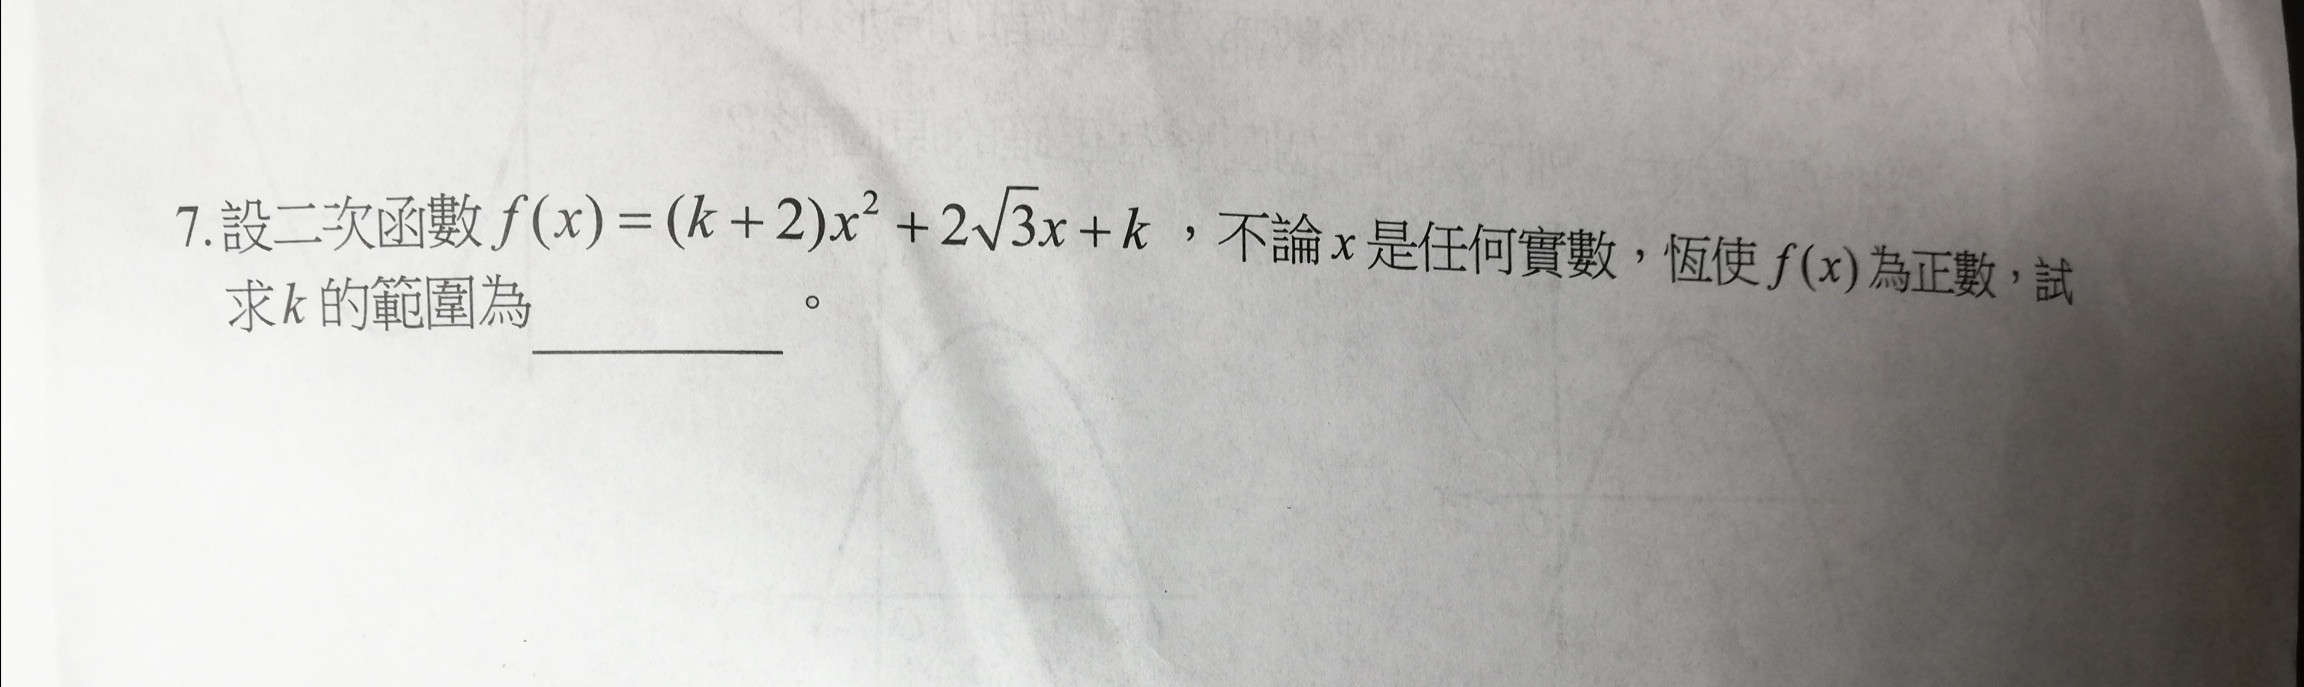 7.設二次函數 f(x)=(k+2)x²+2√3x+k，不論 x 是任何實數，恆使 f(x) 為正數，試
求 k 的範圍為________。